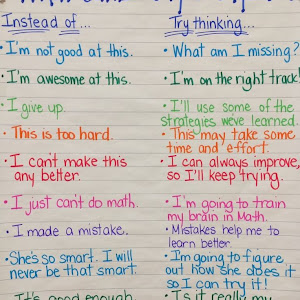 Instead of...
Try thinking...
• I'm not good at this.
• What am I missing?
• I'm awesome at this.
• I'm on the right track!
• I give up.
• I'll use some of the
strategies we've learned.
• This is too hard.
• This may take some
time and effort.
• I can't make this
any better.
• I can always improve,
so I'll keep trying.
• I just can't do math.
• I'm going to train
my brain in Math.
• I made a mistake.
• Mistakes help me to
learn better.
• She's so smart. I will
never be that smart.
• I'm going to figure
out how she does it
so I can try it!
• It's good enough
• Is it really my